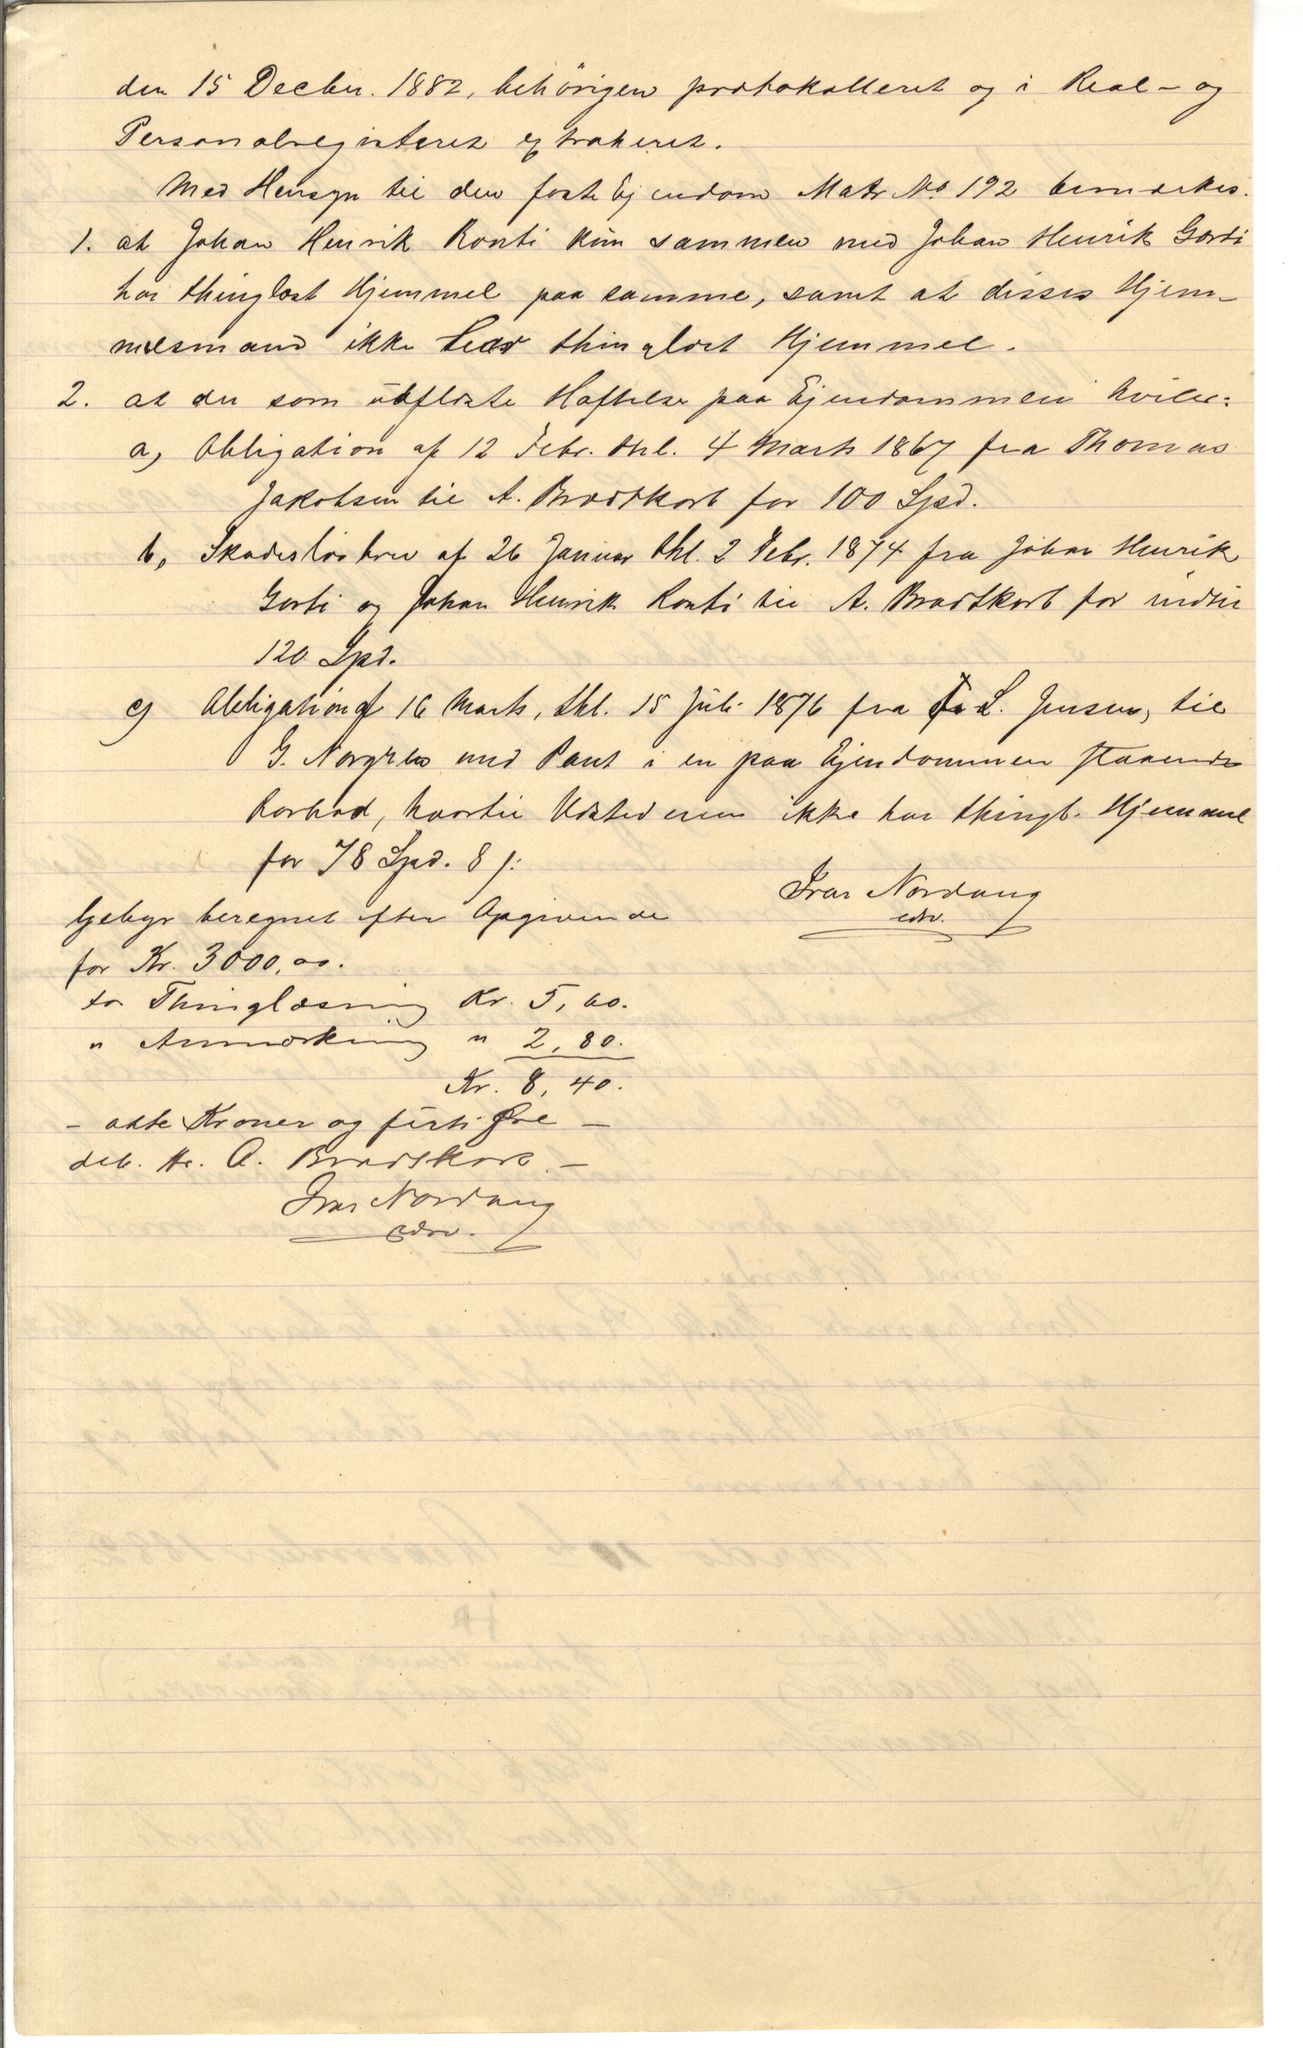 den 15 Decbr. 1882, behörigen protokolleret og i Real- og
Personalregisteret extraheret.
Med Hensyn til den faste Ejendom Matr No. 192 bemærkes.
1. at Johan Henrik Ronti kun sammen med Johan Henrik Gorti
har thinglæst Hjemmel paa samme, samt at disses Hjem-
melsmand ikke har thinglæst Hjemmel.
2. at der som uaflöste Hæftelse paa Ejendommen hviler:
a, Obligation af 12 Febr. thl. 4 Marts 1867 fra Thomas
Jakobsen til A. Brodtkorb for 100 Spd.
b, Skadeslösbrev af 26 Januar thl. 2 Febr. 1874 fra Johan Henrik
Gorti og Johan Henrik Ronti til A. Brodtkorb for indtil
120 Spd.
c, Obligation af 16 Marts, thl. 15 Juli 1876 fra L. Jensen, til
G. Norgren med Pant i en paa Ejendommen staaende
, hvortil Udstederen ikke har thingl. Hjemmel
for 78 Spd. 8 s:
Ivar Nordang
edsv.
Gebyr beregnet efter Opgivende
for Kr. 3000,00.
for Thinglæsning Kr. 5,60.
" Anmærkning " 2,80.
Kr. 8,40.
- otte Kroner og firti Øre -
deb. Hr. A. Brodtkorb. -
Ivar Nordang
edsv.